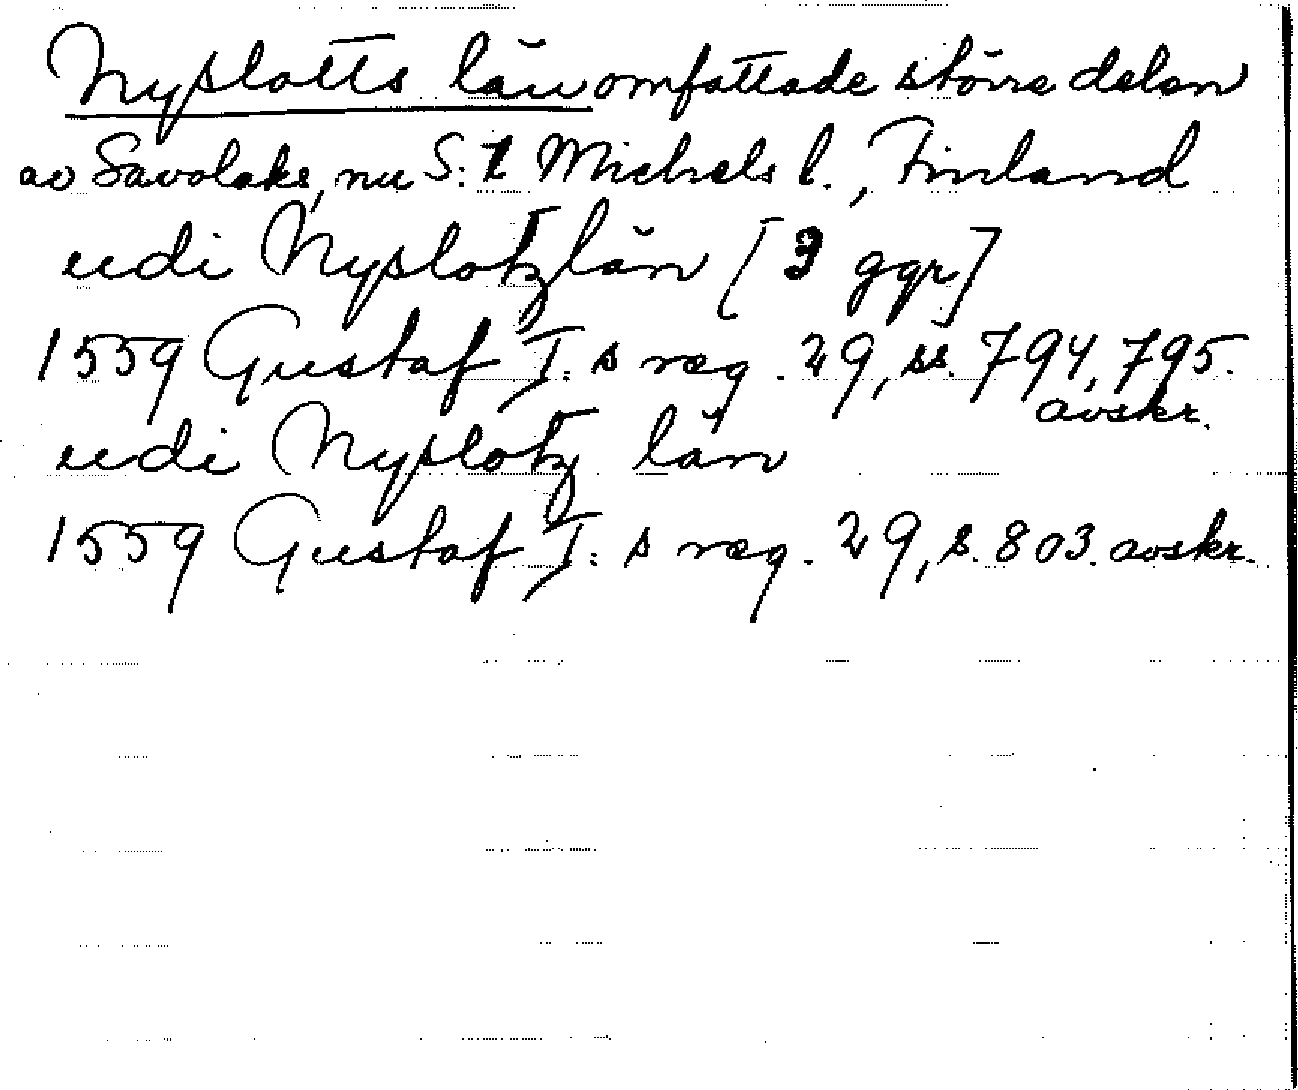 Nyslotts län omfattade större delen
av Savolaks, nu S:t Michels l., Finland
udi Nyslotz län [3 ggr]
1559 Gustaf I:s reg. 29, ss. 794, 795.
avskr.
udi Nyslotz län
1559 Gustaf I:s reg. 29, s. 803. avskr.